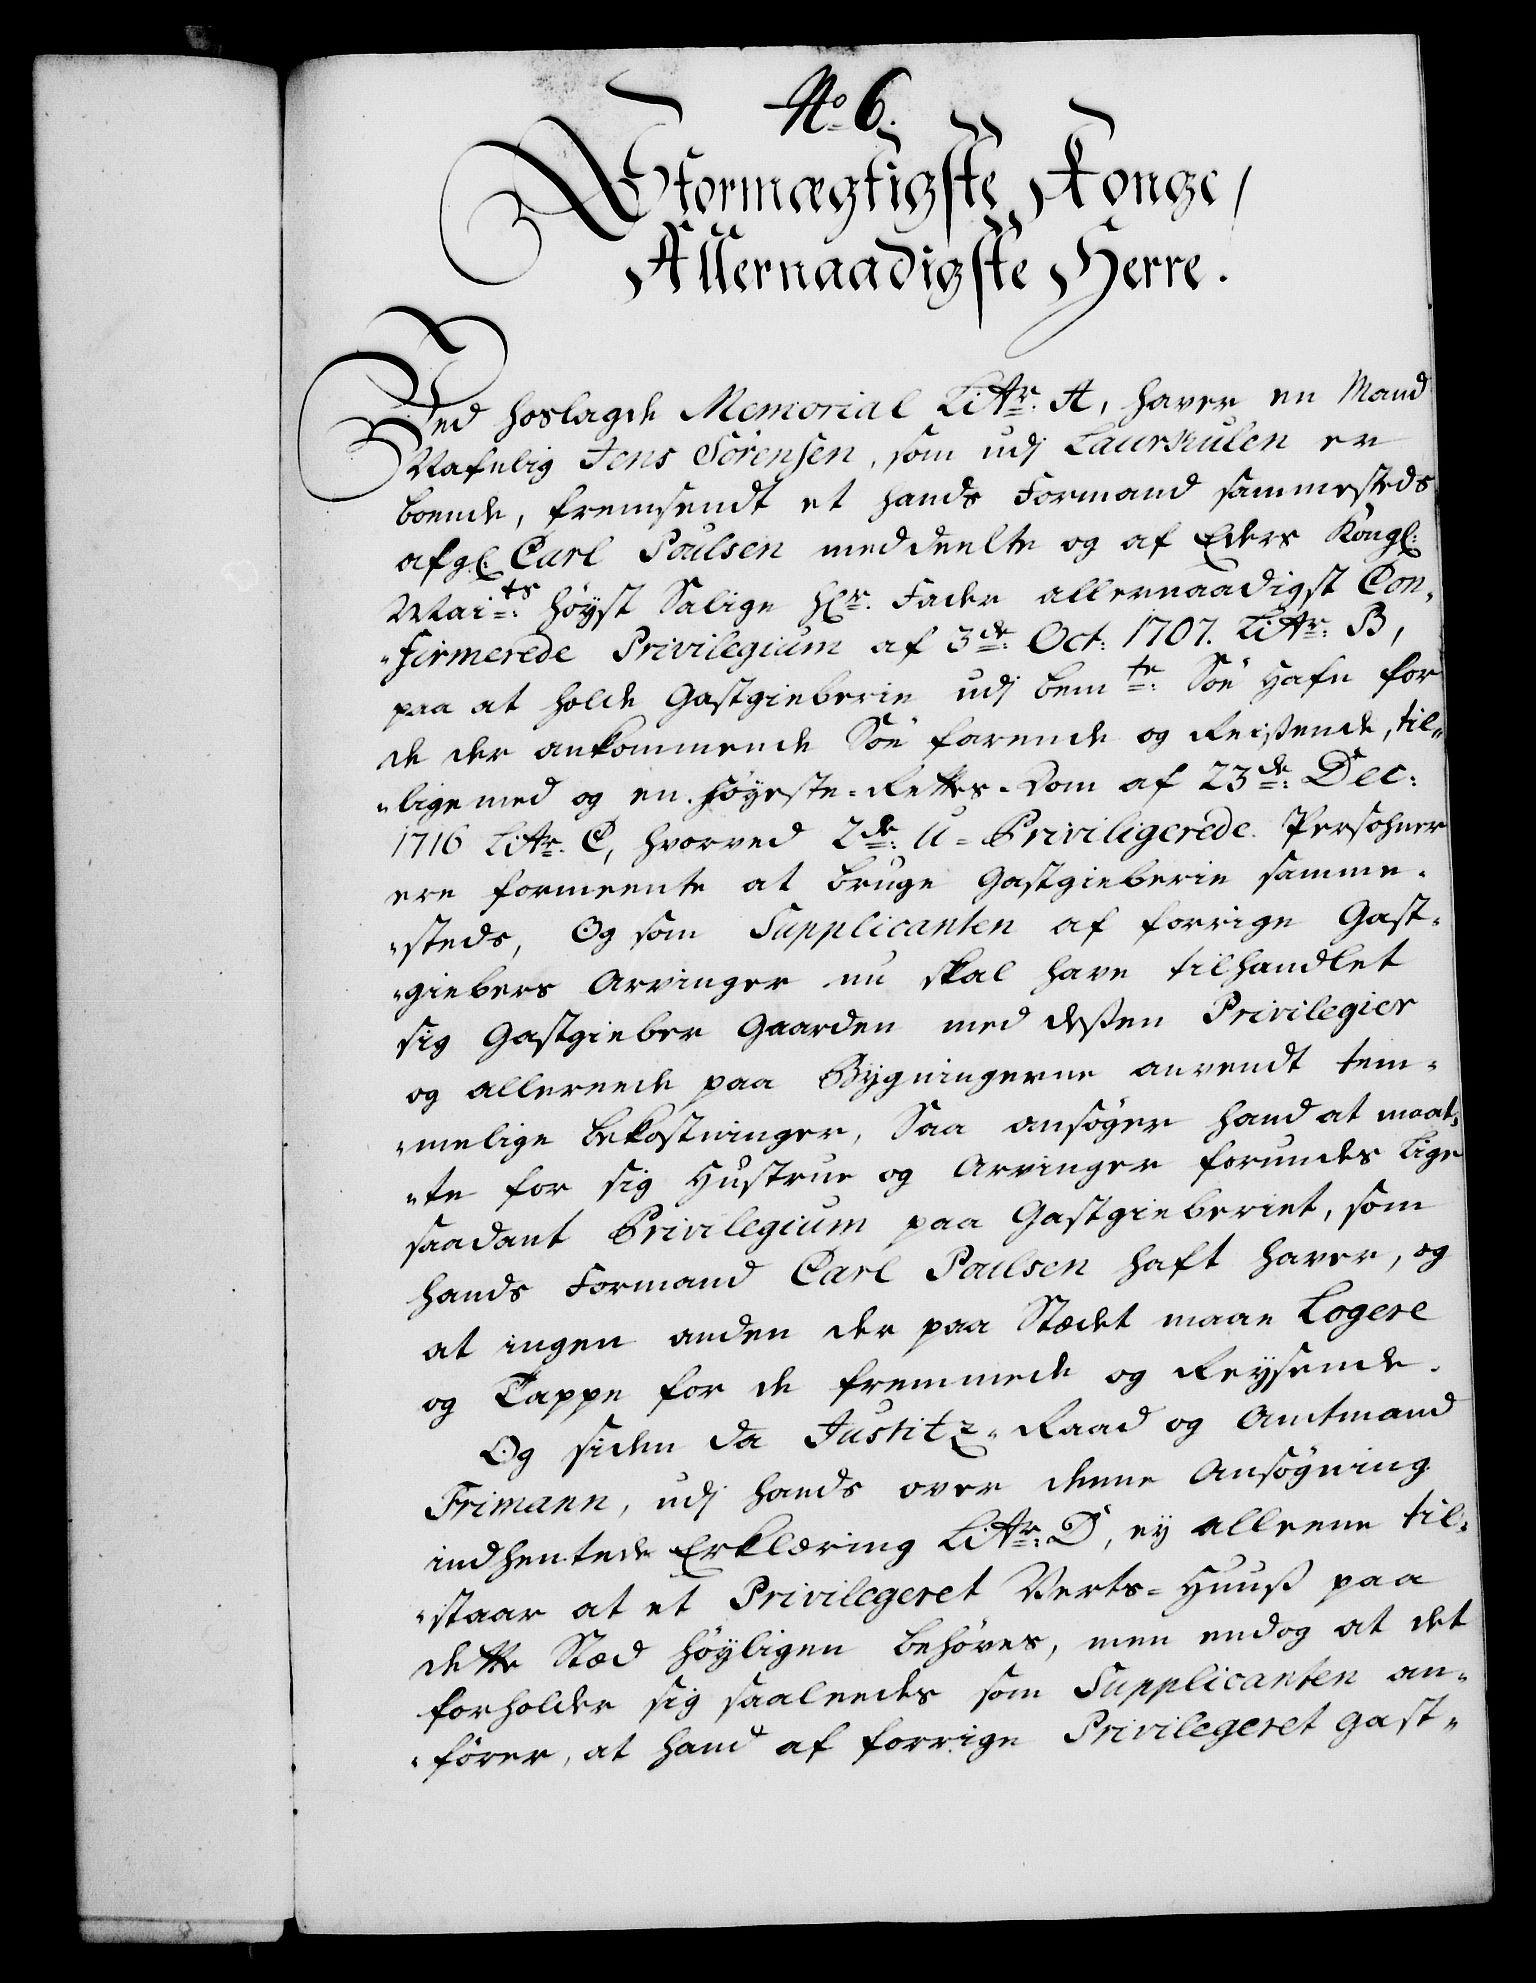 No 6.
Stormægtigste Konge,
Allernaadigste Herre.
Ved hoslagde Memorial Littr. A, haver en Mand
Nafnlig Jens Sörensen, som udj Laurkulen er
boende, fremsendt et hands Formand sammesteds
afgl: Carl Poulsen meddeelte og af Eders Kongl:
Maits: höyst Salige Hr. Fader allernaadigst Con-
-firmerede Privilegium af 3de Oct: 1707. Littr: B,
paa at holde Gastgieberie udj bemte: Söe Hafn for
de der ankommende Söe farende og Reisende, til-
-ligemed og en Höyeste-Rettes-Dom af 23de: Dec:
1716 Littr. C, hvorved 2de: U-Priviligerede Persohner
ere formeente at bruge Gastgieberie samme-
-steds, Og som Supplicanten af forrige Gast-
-giebers Arvinger nu skal have tilhandlet
sig Gastgieber Gaarden med desßen Privilegier
og allereede paa Bygningerne anvendt tem-
-melige bekostninger, Saa ansöger hand at maat-
-te for sig Hustrue og Arvinger forundes lige
saadant Privilegium paa Gastgieberiet, som
hands Formand Carl Poulsen haft haver, og
at ingen anden der paa Stædet maae Logere
og Tappe for de fremmede og Reysende.
Og siden da Justitz-Raad og Amtmand
Frimann, udj hands over denne Ansögning
indhentede Erklæring Littr: D, ey alleene til-
-staar at et Privilegeret Verts-Huuß paa
dette Stæd höyligen behöves, men endog at det
forholder sig saaleedes som Supplicanten an-
-förer, at hand af forrige Privilegeret Gast-